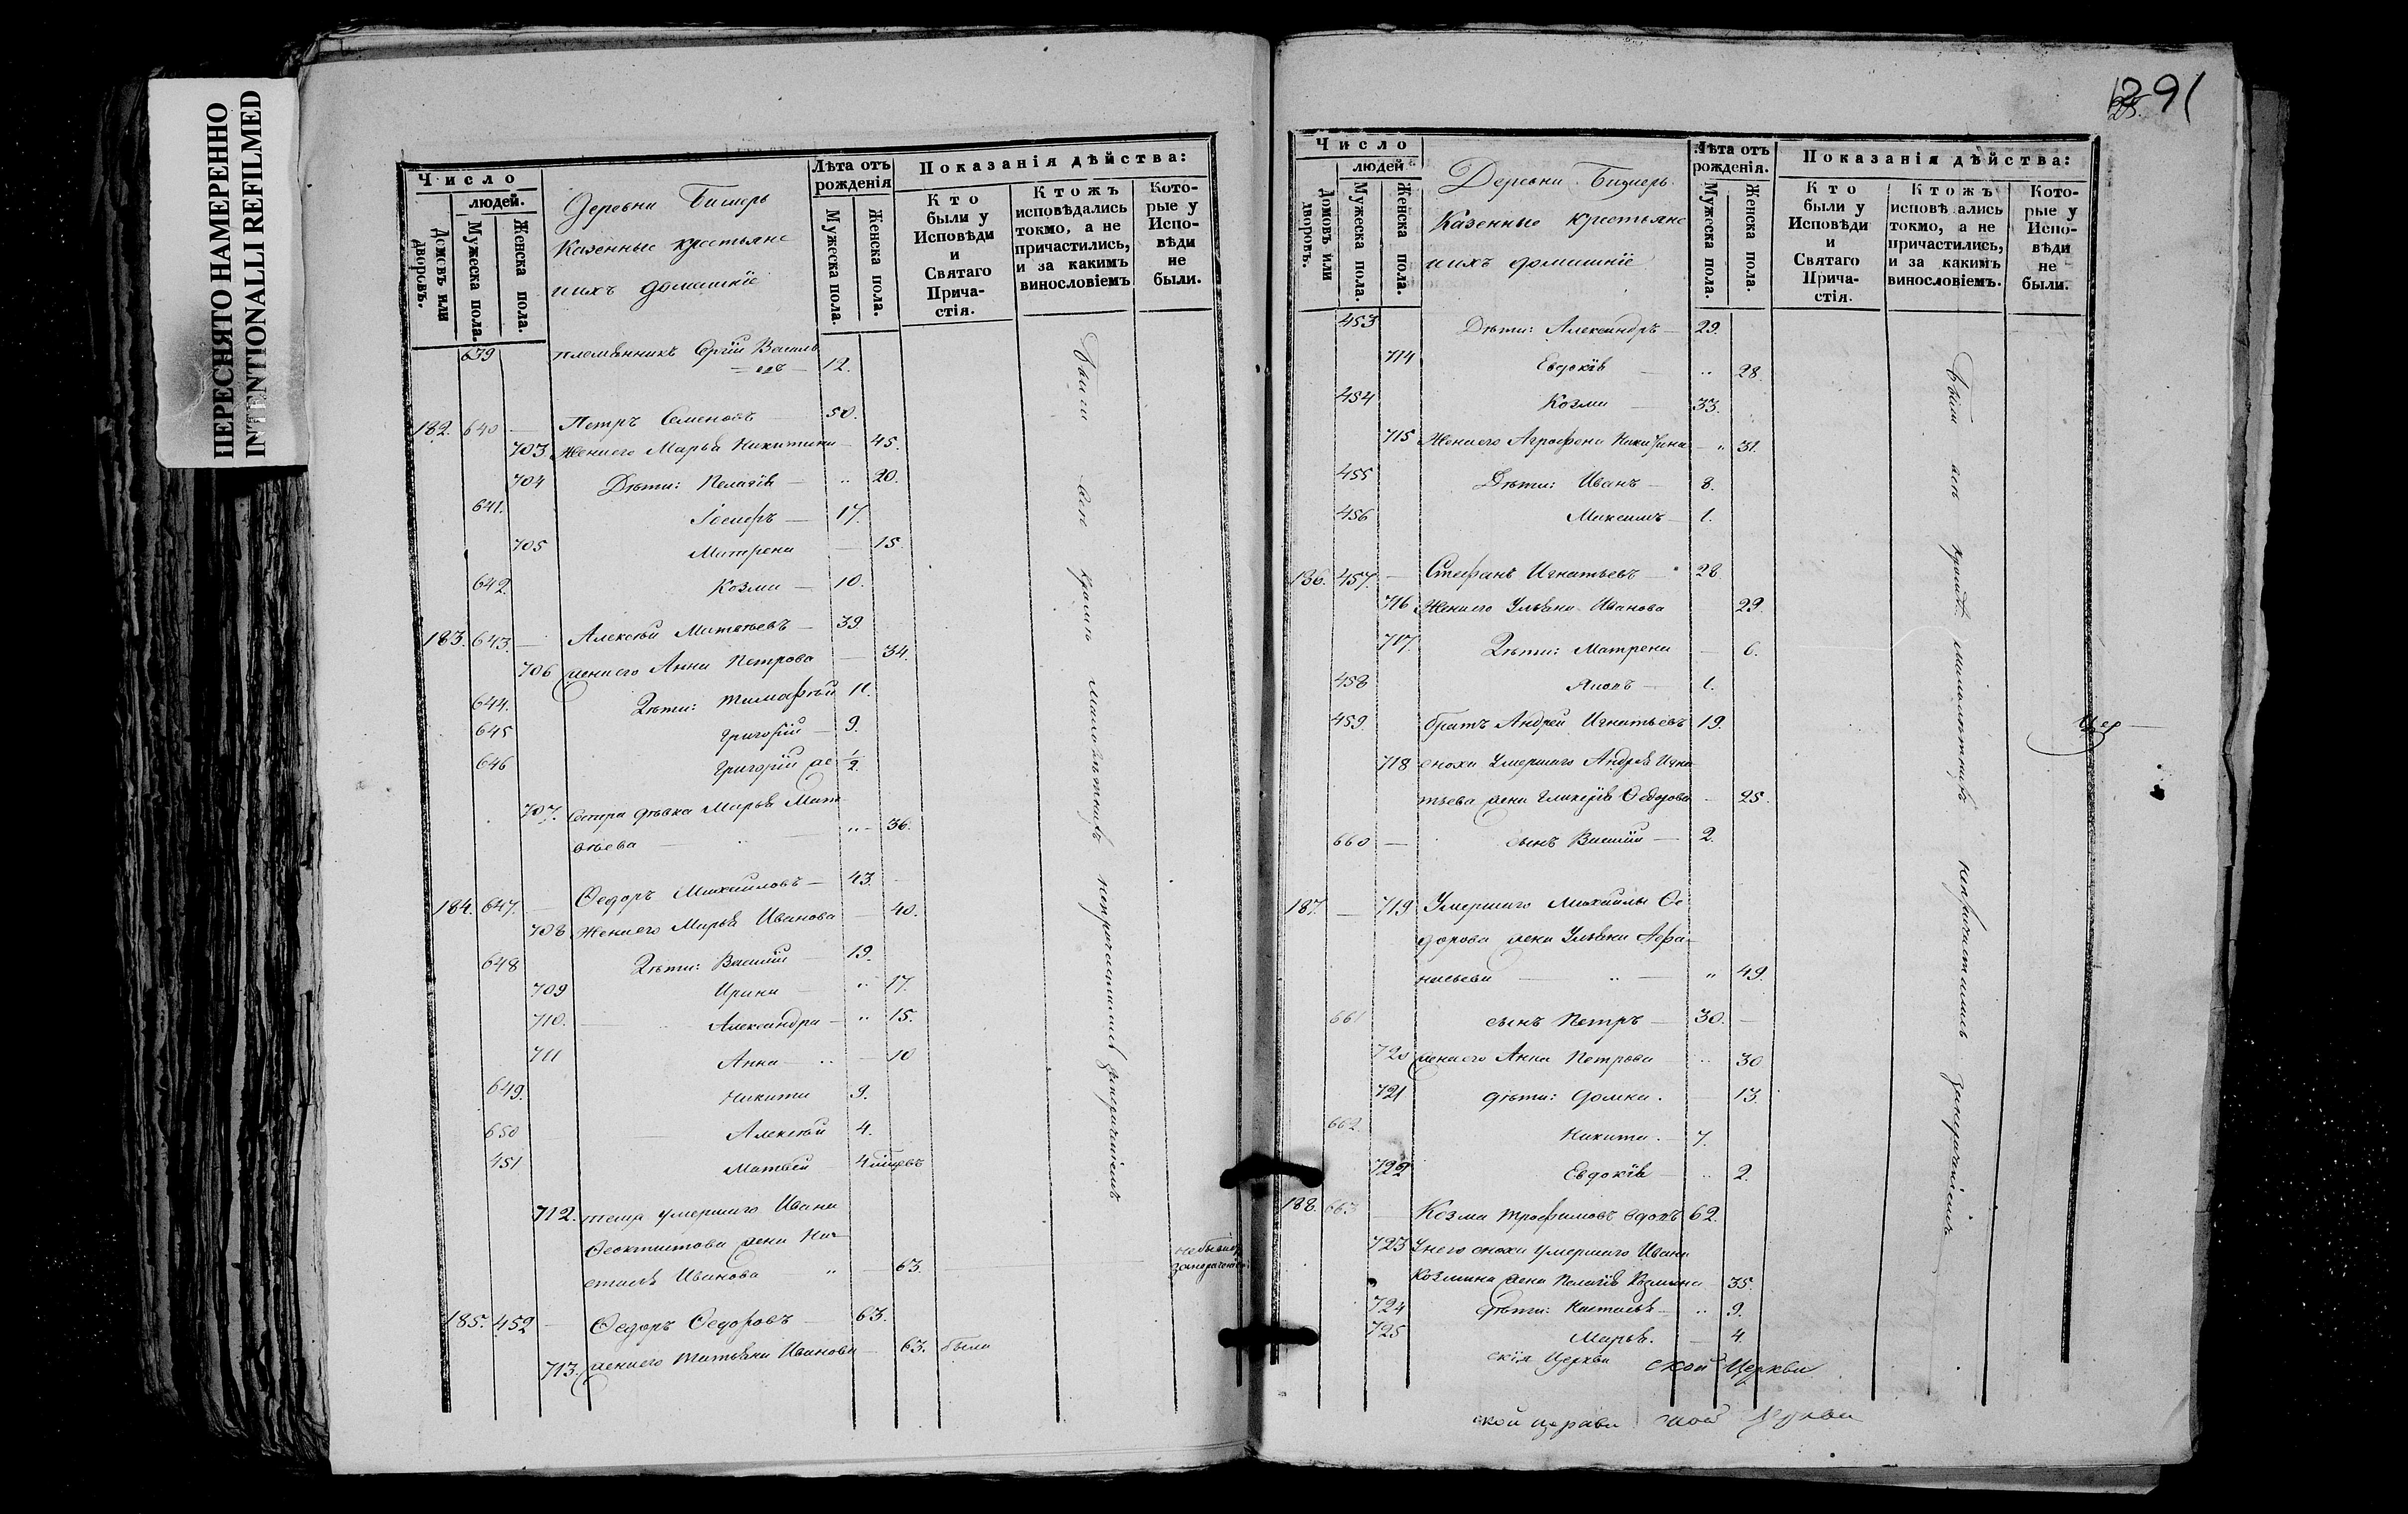 ПЕРЕСНЯТО НАМЕРЕННО
INTENTIONALLI REFILMED
Число
людей.
Домовъ или дворовъ.
Мужеска пола.
Женска пола.
Деревни Бимерь
Казенные крестьяне
и ихъ домашніе
Лѣта отъ рожденія
Мужеска пола.
Женска пола.
Показанія дѣйства:
Кто были у Исповѣди и Святаго Прича-стія.
Ктожъ исповѣдались токмо, а не причастились, и за какимъ винословіемъ
Кото-рые у Испо-вѣди не были.
639 племянникъ Сергій Василь
=евъ — 12.
182. 640 — Петръ Семеновъ 50.
703 Жена его Марья Никитина 45.
704 Дѣти: Пелагія — " 20.
641. Іосифъ — 17.
705 Матрена — 15.
642. Козма — 10.
183. 643. — Алексѣй Матвѣевъ — 39
706 жена его Анна Петрова — 34.
644. Дѣти: Тимофѣй 11.
645 Григорій — 9.
646 Григорій же 1/2.
707. Сестра дѣвка Марья Мат
вѣева — " — 36.
184. 647. — Ѳедоръ Михайловъ — 43.
708 Жена его Марья Иванова — 40.
648 Дѣти: Василій — 19.
709 Ирина — " 17.
710. Александра — " 15.
711 Анна — 10
649. Никита 9.
650 Алексѣй 4.
451 Матвѣй 4
712. теща умершаго Ивана
Ѳеоктистова жена На-
стасья Иванова " — 63.
не были за
185. 452 — Ѳедоръ Ѳедоровъ — 63.
713. жена его Татьяна Иванова — 63. была
Были всѣ кромѣ малолѣтнихъ непричастились
91
25.
Число
людей
Домовъ или дворовъ.
Мужеска пола.
Женска пола.
Деревни Бимерь
Казенные крестьяне
и ихъ домашніе
Лѣта отъ рожденія.
Мужеска пола.
Женска пола.
Показанія дѣйства:
Кто были у Исповѣди и Святаго Прича-стія.
Ктожъ исповѣ ались токмо, а не причастились, и за какимъ винословіемъ.
Кото-рые у Испо-вѣди не были.
453 Дѣти: Александръ — 29.
714 Евдокія — " 28.
454 Козма — 33.
715 Жена его Агрофена — " 31.
455 Дѣти: Иванъ — 8.
456 Максимъ — 1.
186. 457. — Стефанъ Игнатьевъ — 28
716 Жена его Ульяна Иванова 29.
717. Дѣти: Матрена — 6.
458 — 1.
459. братъ Андрей Игнатьевъ 19.
718 сноха умершаго Андрея Игна
тьева жена Гликерія Ѳедорова — 25.
660 — сынъ Василій — 2.
187. — 719 Умершаго Михайлы Ѳе
дорова жена Ульяна Афа-
насьева — " 49.
661 сынъ Петръ — 30. —
720 жена его Анна Петрова " 30
721 дѣти: Домна. — 13.
662. Никита. — 7.
722 Евдокія — " 2.
188. 663 — Козма Трофимовъ вдовъ 62.
723 У него сноха умершаго Ивана
Козмина жена Пелагія 35.
724 дѣти: Настасья — " 9.
725 Марья. — 4.
Были всѣ кромѣ малолѣтнихъ непричастились
Цер
скія Церкви ской Церкви
ской церкви